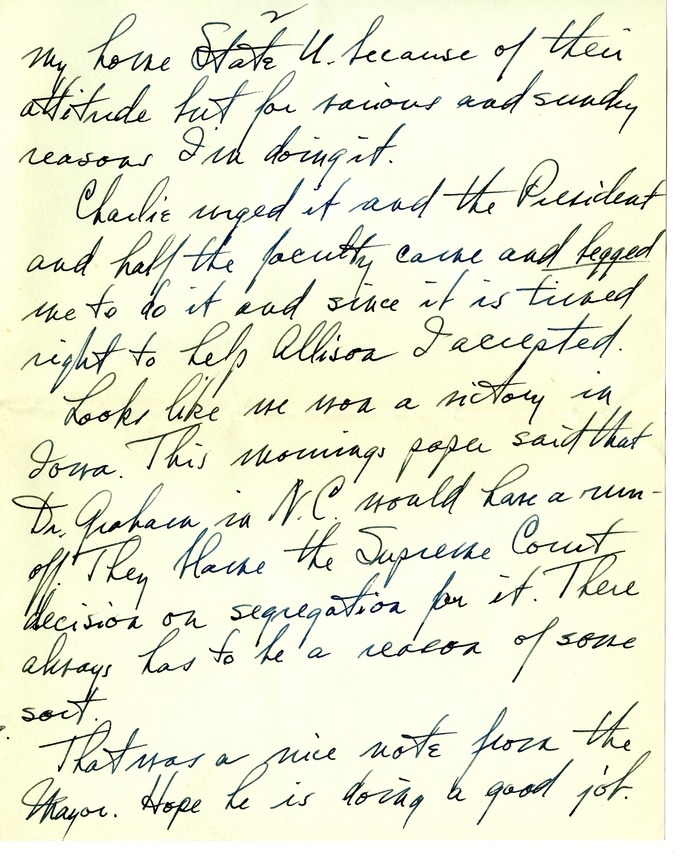 2
my home State U. because of their
attitude but for various and sundry
reasons I'm doing it.
Charlie urged it and the President
and half the faculty came and begged
me to do it and since it is timed
right to help Allison I accepted.
Looks like we won a victory in
Iowa. This mornings paper said that
Dr. Graham in N.C. would have a run-
off. They blame the Supreme Court
decision on segregation for it. There
always has to be a reason of some
sort.
That was a nice note from the
Mayor. Hope he is doing a good job.